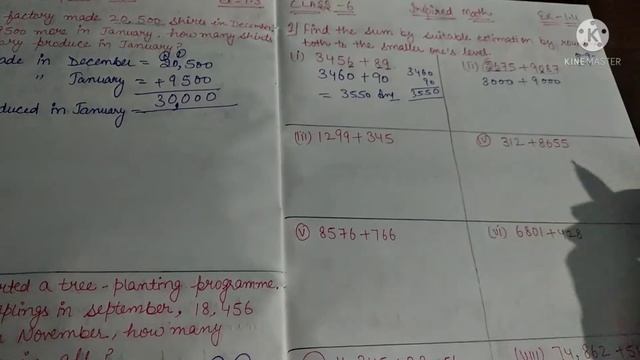 factory made 20,500 shirts in December
9500 more in January. how many shirts
produce in January?
made in December = 20,500
" January = + 9500
30,000
produced in January =
started a tree-planting programme.
saplings in september, 18,456
November, how many
in all?
CLASS-6 Inspired Maths
1) Find the sum by suitable estimation by
both to the smaller one's level.
(i) 3456 + 89
3460 + 90
= 3550 Ans
3460
90
3550
(ii) + 9
3000 + 9000
(iii) 1299 + 345
(iv) 312 + 8655
(v) 8576 + 766
(vi) 6801 + 428
(viii) 74,862 +
MADE WITH
KINEMASTER